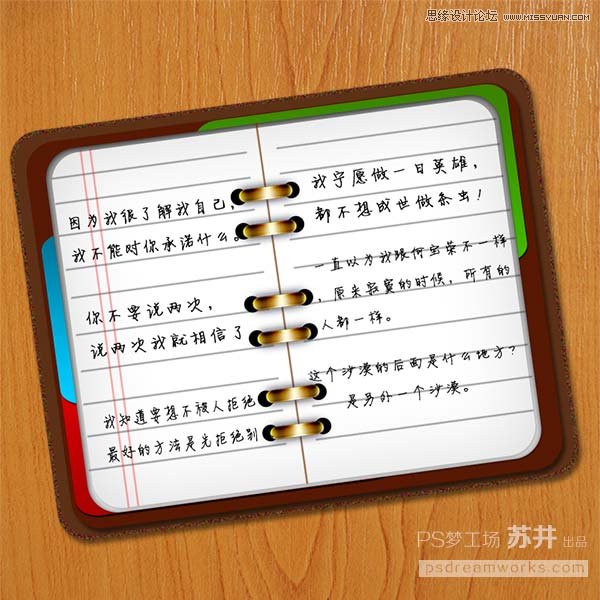 思缘设计论坛 WWW.MISSYUAN.COM
因为我很了解我自己，
我不能对你承诺什么。
你不要说两次，
说两次我就相信了
我知道要想不被人拒绝
最好的方法是先拒绝别
我宁愿做一日英雄，
都不想成世做条虫！
一直以为我跟何宝荣不一样
，原来寂寞的时候，所有的
人都一样。
这个沙漠的后面是什么地方？
是另外一个沙漠。
PS梦工场 苏井 出品
psdreamworks.com